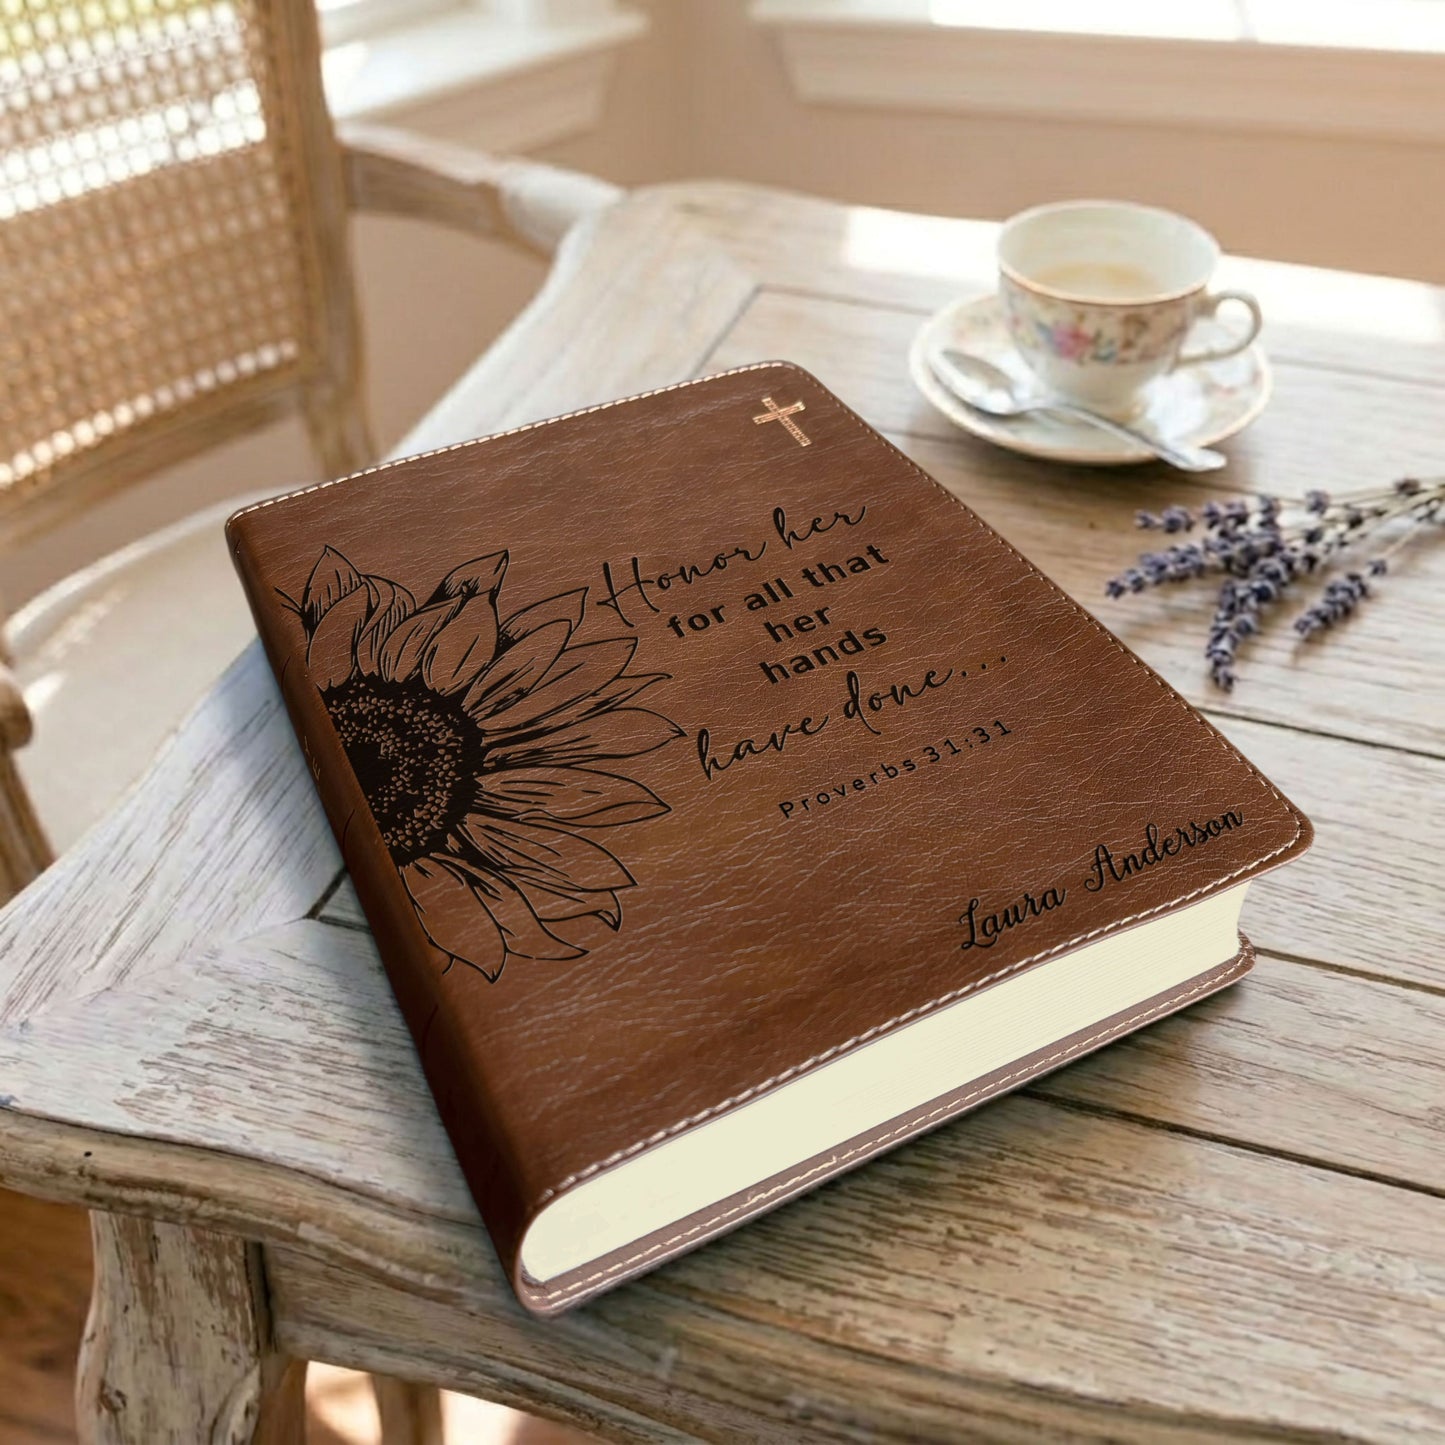 Honor her
for all that
her
hands
have done...
Proverbs 31:31
Laura Anderson